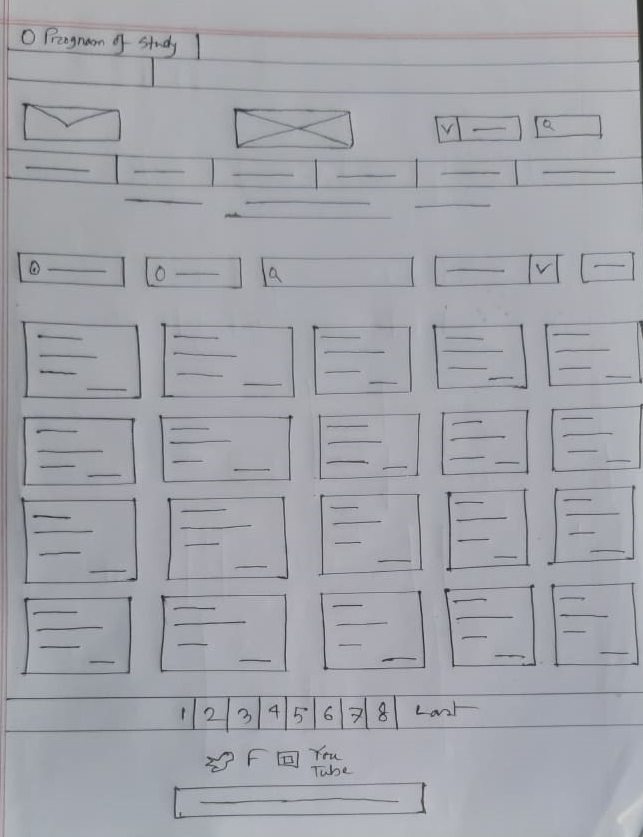 O Program of Study
1 2 3 4 5 6 7 8 Last
F You
Tube